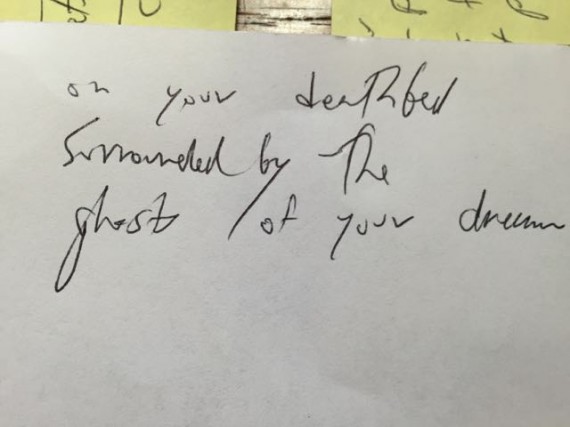 on your deathbed
surrounded by the
ghost of your dream